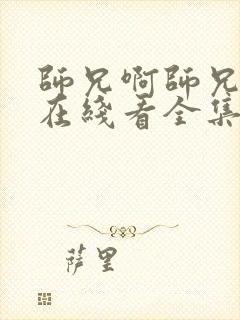 師兄啊師兄
在綫看全集
萨里